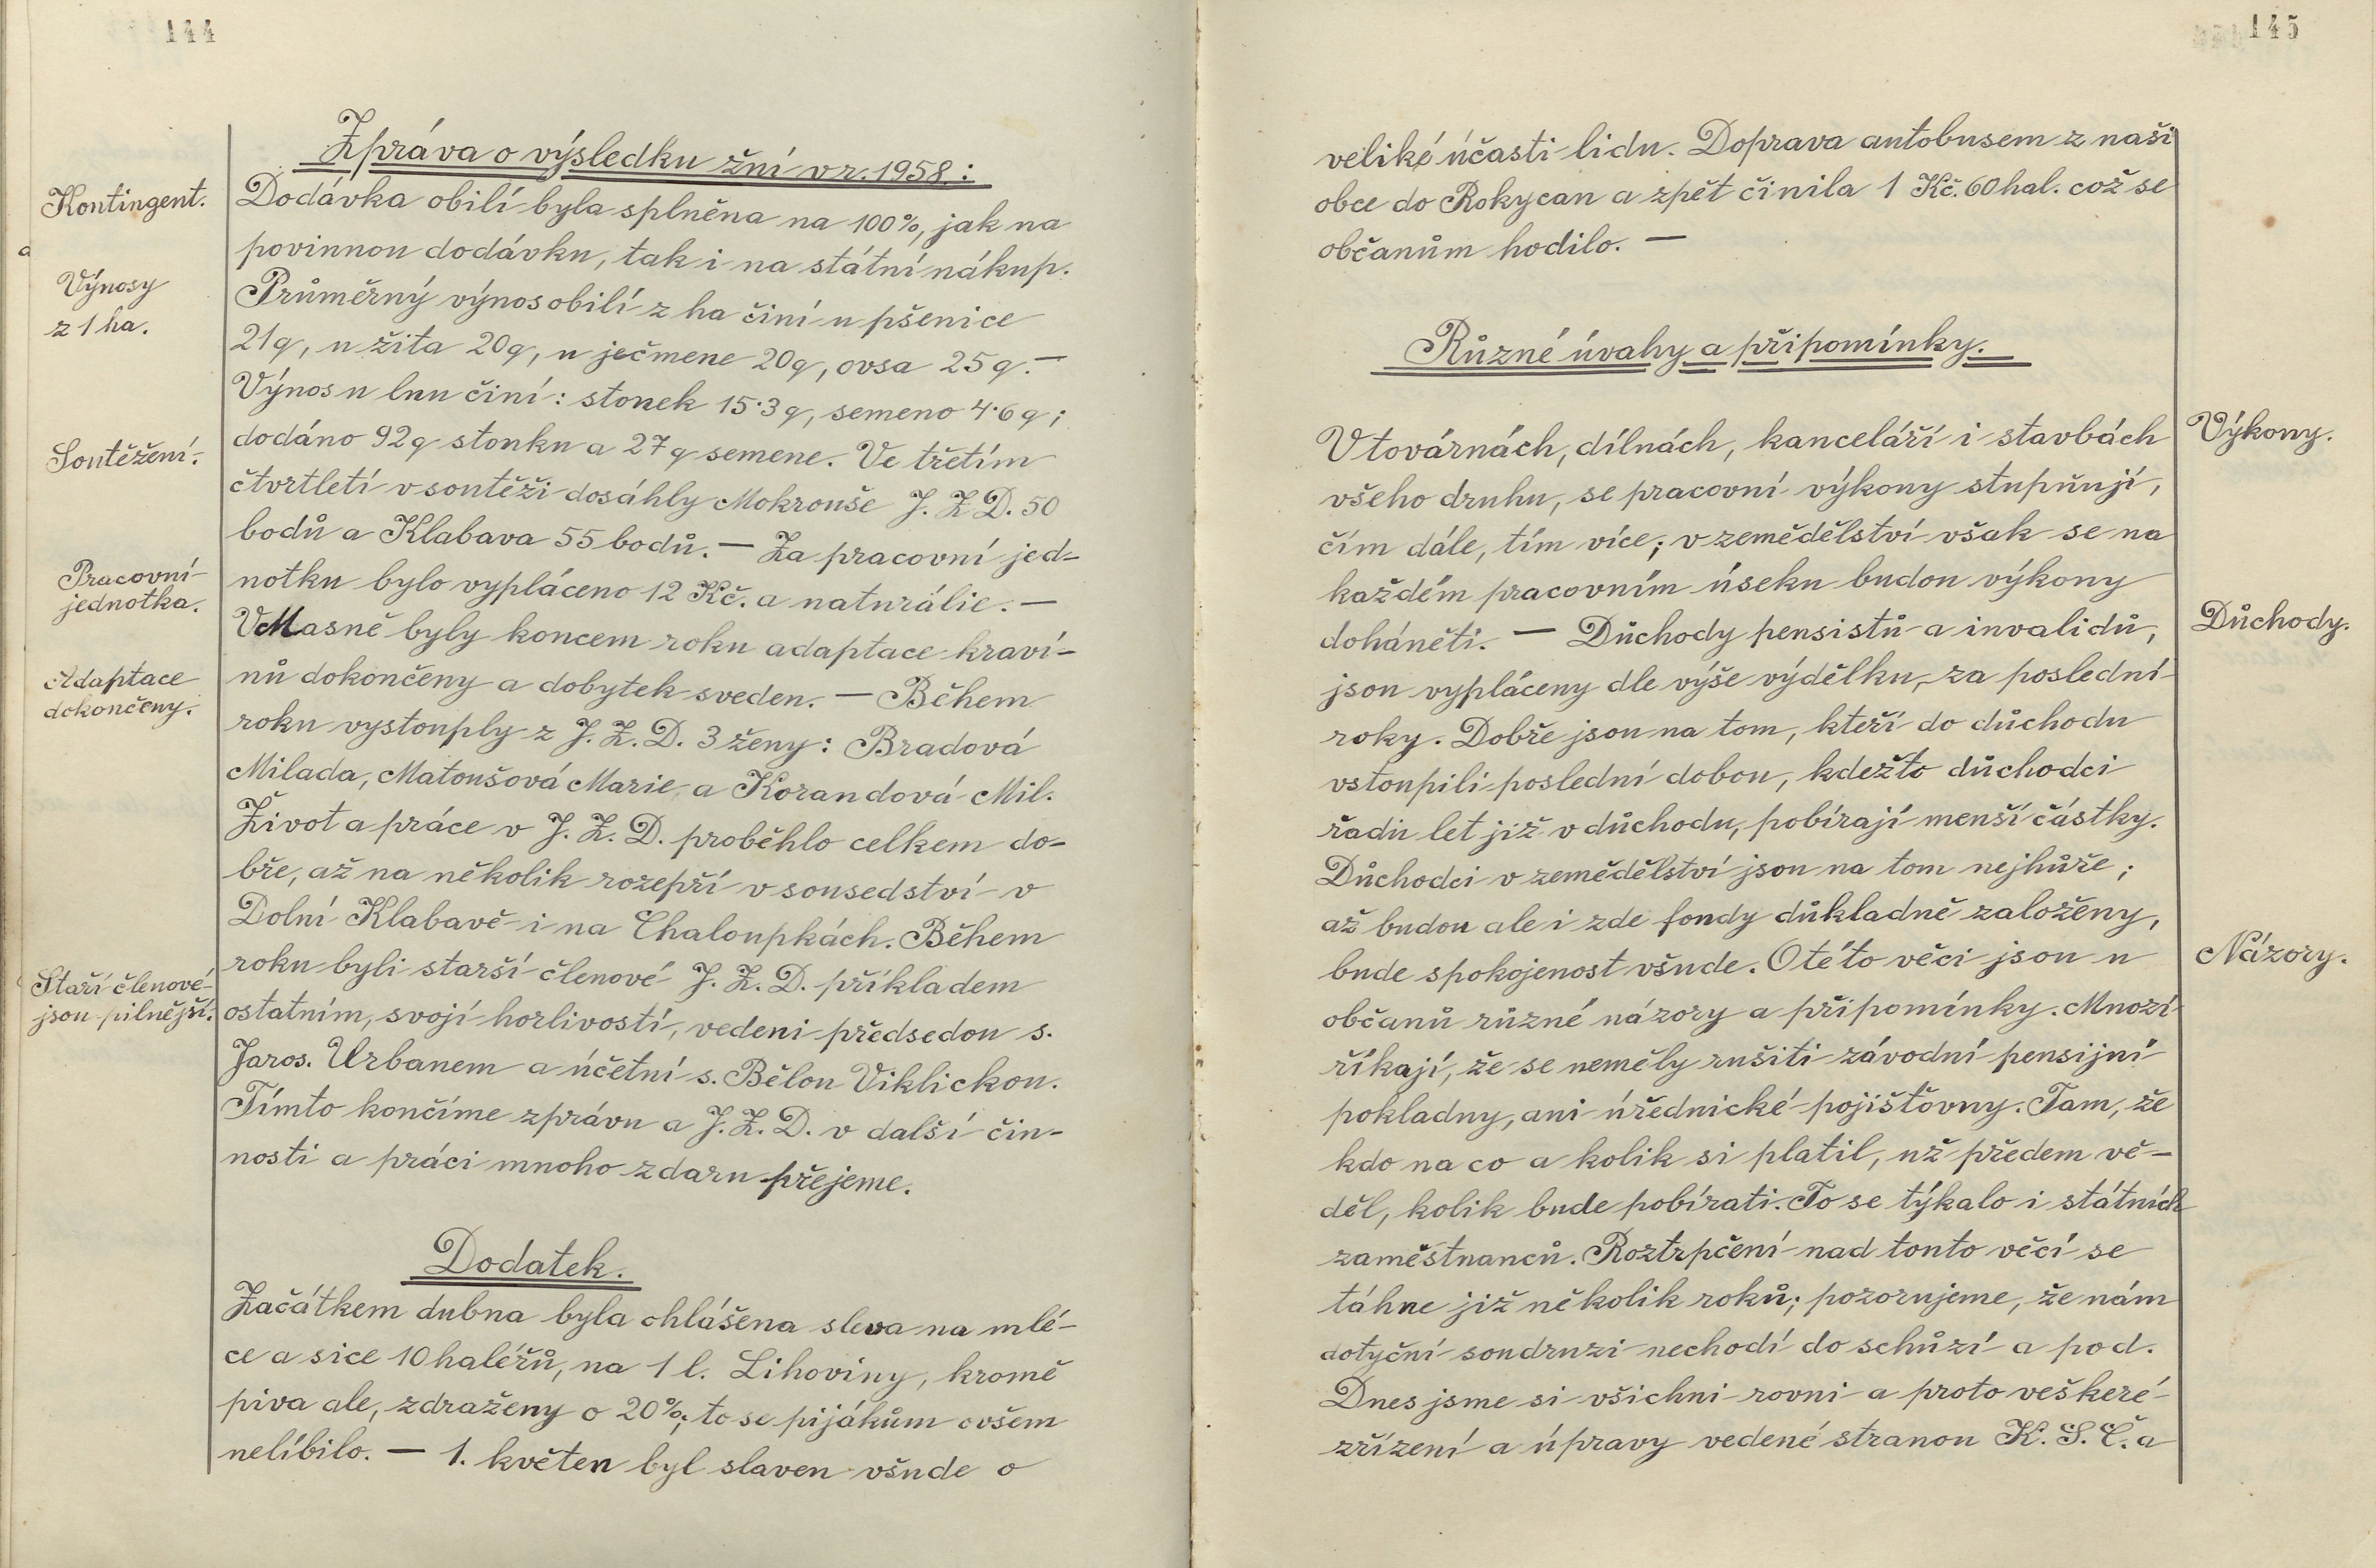 144
Zpráva o výsledku žní v r. 1958:
Kontingent.
Dodávka obilí byla splněna na 100%, jak na
povinnou dodávku, tak i na státní nákup.
Výnosy
z 1 ha.
Průměrný výnos obilí z ha činí u pšenice
21q, u žita 20q, u ječmene 20q, ovsa 25q. —
Výnos u lnu činí: stonek 15·3q, semeno 4·6q;
Soutěžení.
dodáno 92q stonku a 27q semene. Ve třetím
čtvrtletí v soutěži dosáhly Mokrouše J. Z D. 50
bodů a Klabava 55 bodů. — Za pracovní jed-
Pracovní
jednotka.
notku bylo vypláceno 12 Kč. a naturálie. —
V Masně byly koncem roku adaptace kraví-
Adaptace
dokončeny.
nů dokončeny a dobytek sveden. — Během
roku vystouply z J. Z. D. 3 ženy: Bradová
Milada, Matoušová Marie a Korandová Mil.
Život a práce v J. Z. D. proběhlo celkem do-
bře, až na několik rozepří v sousedství v
Dolní Klabavě i na Chaloupkách. Během
Staří členové
jsou pilnější.
roku byli starší členové J. Z. D. příkladem
ostatním, svojí horlivostí, vedeni předsedou s.
Jaros. Urbanem a účetní s. Bělou Viklickou.
Tímto končíme zprávu a J. Z. D. v další čin-
nosti a práci mnoho zdaru přejeme.
Dodatek.
Začátkem dubna byla ohlášena sleva na mlé-
ce a sice 10 haléřů, na 1 l. Lihoviny, kromě
piva ale, zdraženy o 20%; to se pijákům ovšem
nelíbilo. — 1. květen byl slaven všude o
145
veliké účasti lidu. Doprava autobusem z naši
obce do Rokycan a zpět činila 1 Kč. 60 hal. což se
občanům hodilo. —
Různé úvahy a připomínky.
Výkony.
V továrnách, dílnách, kanceláří i stavbách
všeho druhu, se pracovní výkony stupňují,
čím dále, tím více; v zemědělství však se na
každém pracovním úseku budou výkony
Důchody.
doháněti. — Důchody pensistů a invalidů,
jsou vypláceny dle výše výdělku, za poslední
roky. Dobře jsou na tom, kteří do důchodu
vstoupili poslední dobou, kdežto důchodci
řadu let již v důchodu, pobírají menší částky.
Důchodci v zemědělství jsou na tom nejhůře;
až budou ale i zde fondy důkladně založeny,
Názory.
bude spokojenost všude. O této věci jsou u
občanů různé názory a připomínky. Mnozí
říkají, že se neměly rušiti závodní pensijní
pokladny, ani úřednické pojišťovny. Tam, že
kdo na co a kolik si platil, už předem vě-
děl, kolik bude pobírati. To se týkalo i státních
zaměstnanců. Roztrpčení nad touto věcí se
táhne již několik roků; pozorujeme, že nám
dotyční soudruzi nechodí do schůzí a pod.
Dnes jsme si všichni rovni a proto veškeré
zřízení a úpravy vedené stranou K. S. Č. a